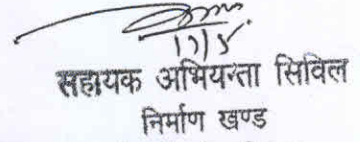 सहायक अभियन्ता सिविल
निर्माण खण्ड